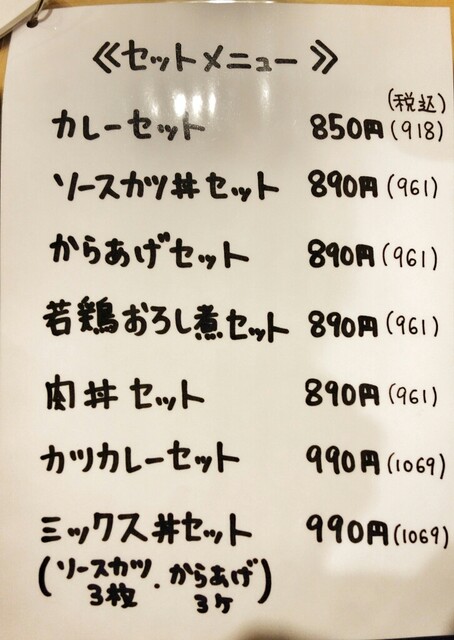 ≪セットメニュー≫
(税込)
カレーセット 850円(918)
ソースカツ丼セット 890円(961)
からあげセット 890円(961)
若鶏おろし煮セット 890円(961)
肉丼セット 890円(961)
カツカレーセット 990円(1069)
ミックス丼セット 990円(1069)
(ソースカツ・からあげ)
3枚 3ヶ